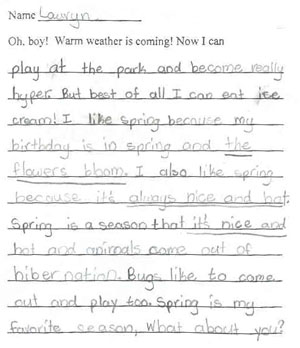 Name Lauryn
Oh, boy! Warm weather is coming! Now I can
play at the park and become really
hyper. But best of all I can eat ice
cream! I like spring because my
birthday is in spring and the
flowers bloom. I also like spring
because it's always nice and hot.
Spring is a season that it's nice and
hot and animals come out of
hibernation. Bugs like to come
out and play too. Spring is my
favorite season, What about you?